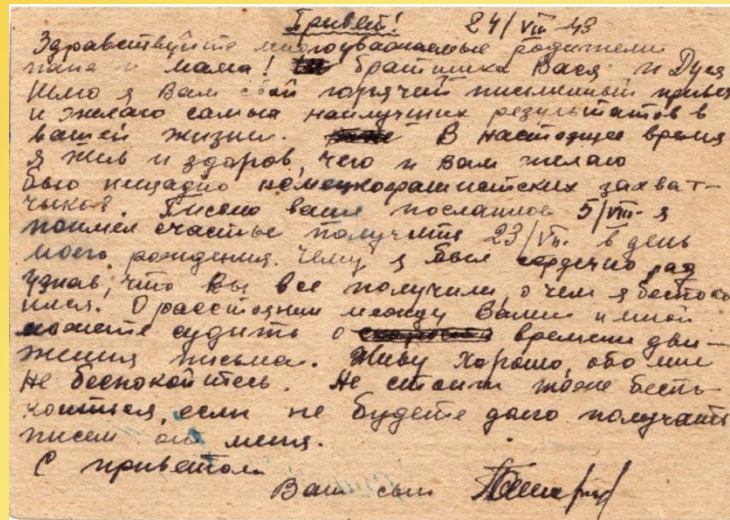 Привет! 24/VIII-43
Здравствуйте многоуважаемые родители
папа и мама! братишка Вася и Дуся
Шлю я Вам свой горячий письменный привет
и желаю самых наилучших результатов в
вашей жизни. В настоящее время
я жив и здоров, чего и вам желаю
бью нещадно немецкофашистских захват-
чыков. Письмо ваше посланное 5/VIII-я
поимел счастье получить 23/VIII. в день
моего рождения. Чему я был сердечно рад
узнав, что вы все получили, о чем я беспоко
ился. О расстоянии между Вами и мной
можете судить о скорости времени дви-
жения письма. Живу хорошо, обо мне
не беспокойтесь. Не стоит тоже беспо-
коиться, если не будете долго получать
писем от меня.
С приветом
Ваш сын